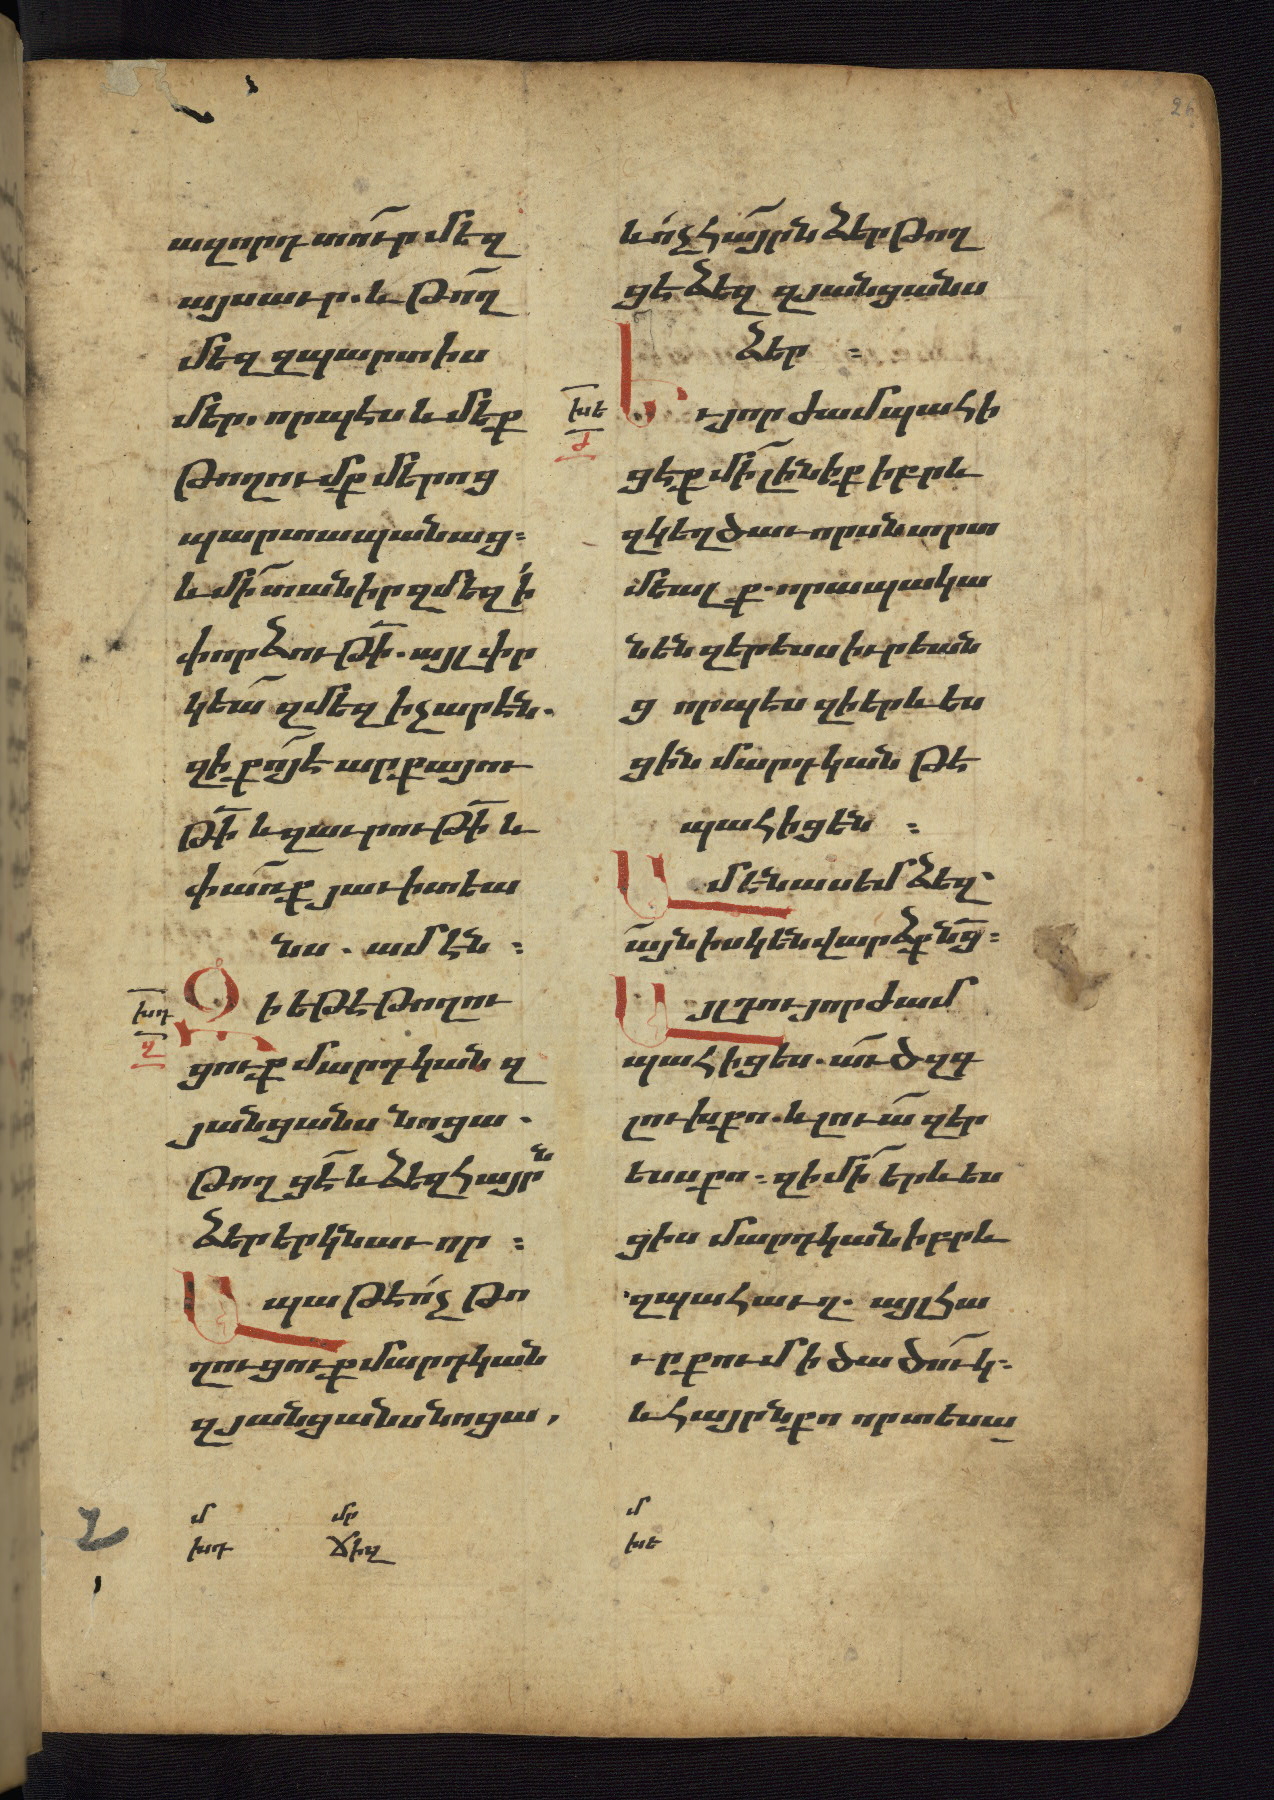 26
ազորդ տուր մեզ
այսաւր. և թող
մեզ զպարտիս
մեր. որպէս և մեք
թողումք մերոց
պարտապանաց։
և մի տանիր զմեզ ի
փորձութի. այլ փր
կեա զմեզ ի չարէն.
զի քոյ է արքայու
թի և զաւրութի և
փառք յաւիտեա
նս. ամէն։
խդ
զ
Զի եթէ թողու
ցուք մարդկան զ
յանցանս նոցա.
թողցէ և ձեզ հայրն
ձեր երկնաւոր։
Ապա թէ ոչ թո
ղուցուք մարդկան
զյանցանս նոցա,
և ոչ հայրն ձեր թող
ցէ ձեզ զյանցանս
ձեր։
խե
ժ
Եւ յորժամ պահի
ցէք մի լինիք իբրև
զկեղծաւորսն տրտ
մեալք. որ ապակա
նեն զերեսս իւրեան
ց որպէս զի երևես
ցին մարդկան թէ
պահիցեն։
Ամէն ասեմ ձեզ՝
այն իսկ են վարձք նց։
Այլ դու յորժամ
պահիցես. ած զգ
լուխ քո. և լուա զեր
եսս քո. զի մի երևես
ցիս մարդկան իբրև
զպահաւղ. այլ հա
ւր քում ի ծածուկ։
և հայրն քո որ տեսա
մ մր
խդ ճիզ
մ
խե